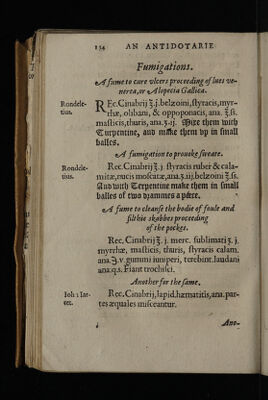 134 AN ANTIDOTARIE
Fumigations.
A fume to cure vlcers proceeding of lues ve-
nerea, or Alopecia Gallica.
Rondele-
tius.
REc. Cinabrij ℥.j. belzoini, styracis, myr-
rhæ, olibani, & oppoponacis, ana. ℥.ß.
masticis, thuris, ana.ʒ.ij. Mixe them with
Turpentine, and make them vp in small
balles.
A fumigation to prouoke sweate.
Rondele-
tius.
Rec. Cinabrij ℥.j. styracis rubeæ & cala-
mitæ, nucis moscatæ, ana.ʒ.iij. belzoini ℥.ß.
And with Terpentine make them in small
balles of two drammes a peece.
A fume to cleanse the bodie of foule and
filthie skabbes proceeding
of the pockes.
Rec. Cinabrij ℥.j. merc. sublimati ʒ.j.
myrrhæ, masticis, thuris, styracis calam.
ana.ʒ.v. gummi iuniperi, terebint. laudani
ana.q.s. Fiant trochisci.
Another for the same.
Rec. Cinabrij, lapid. hæmatitis, ana. par-
tes æquales misceantur.
Ano-